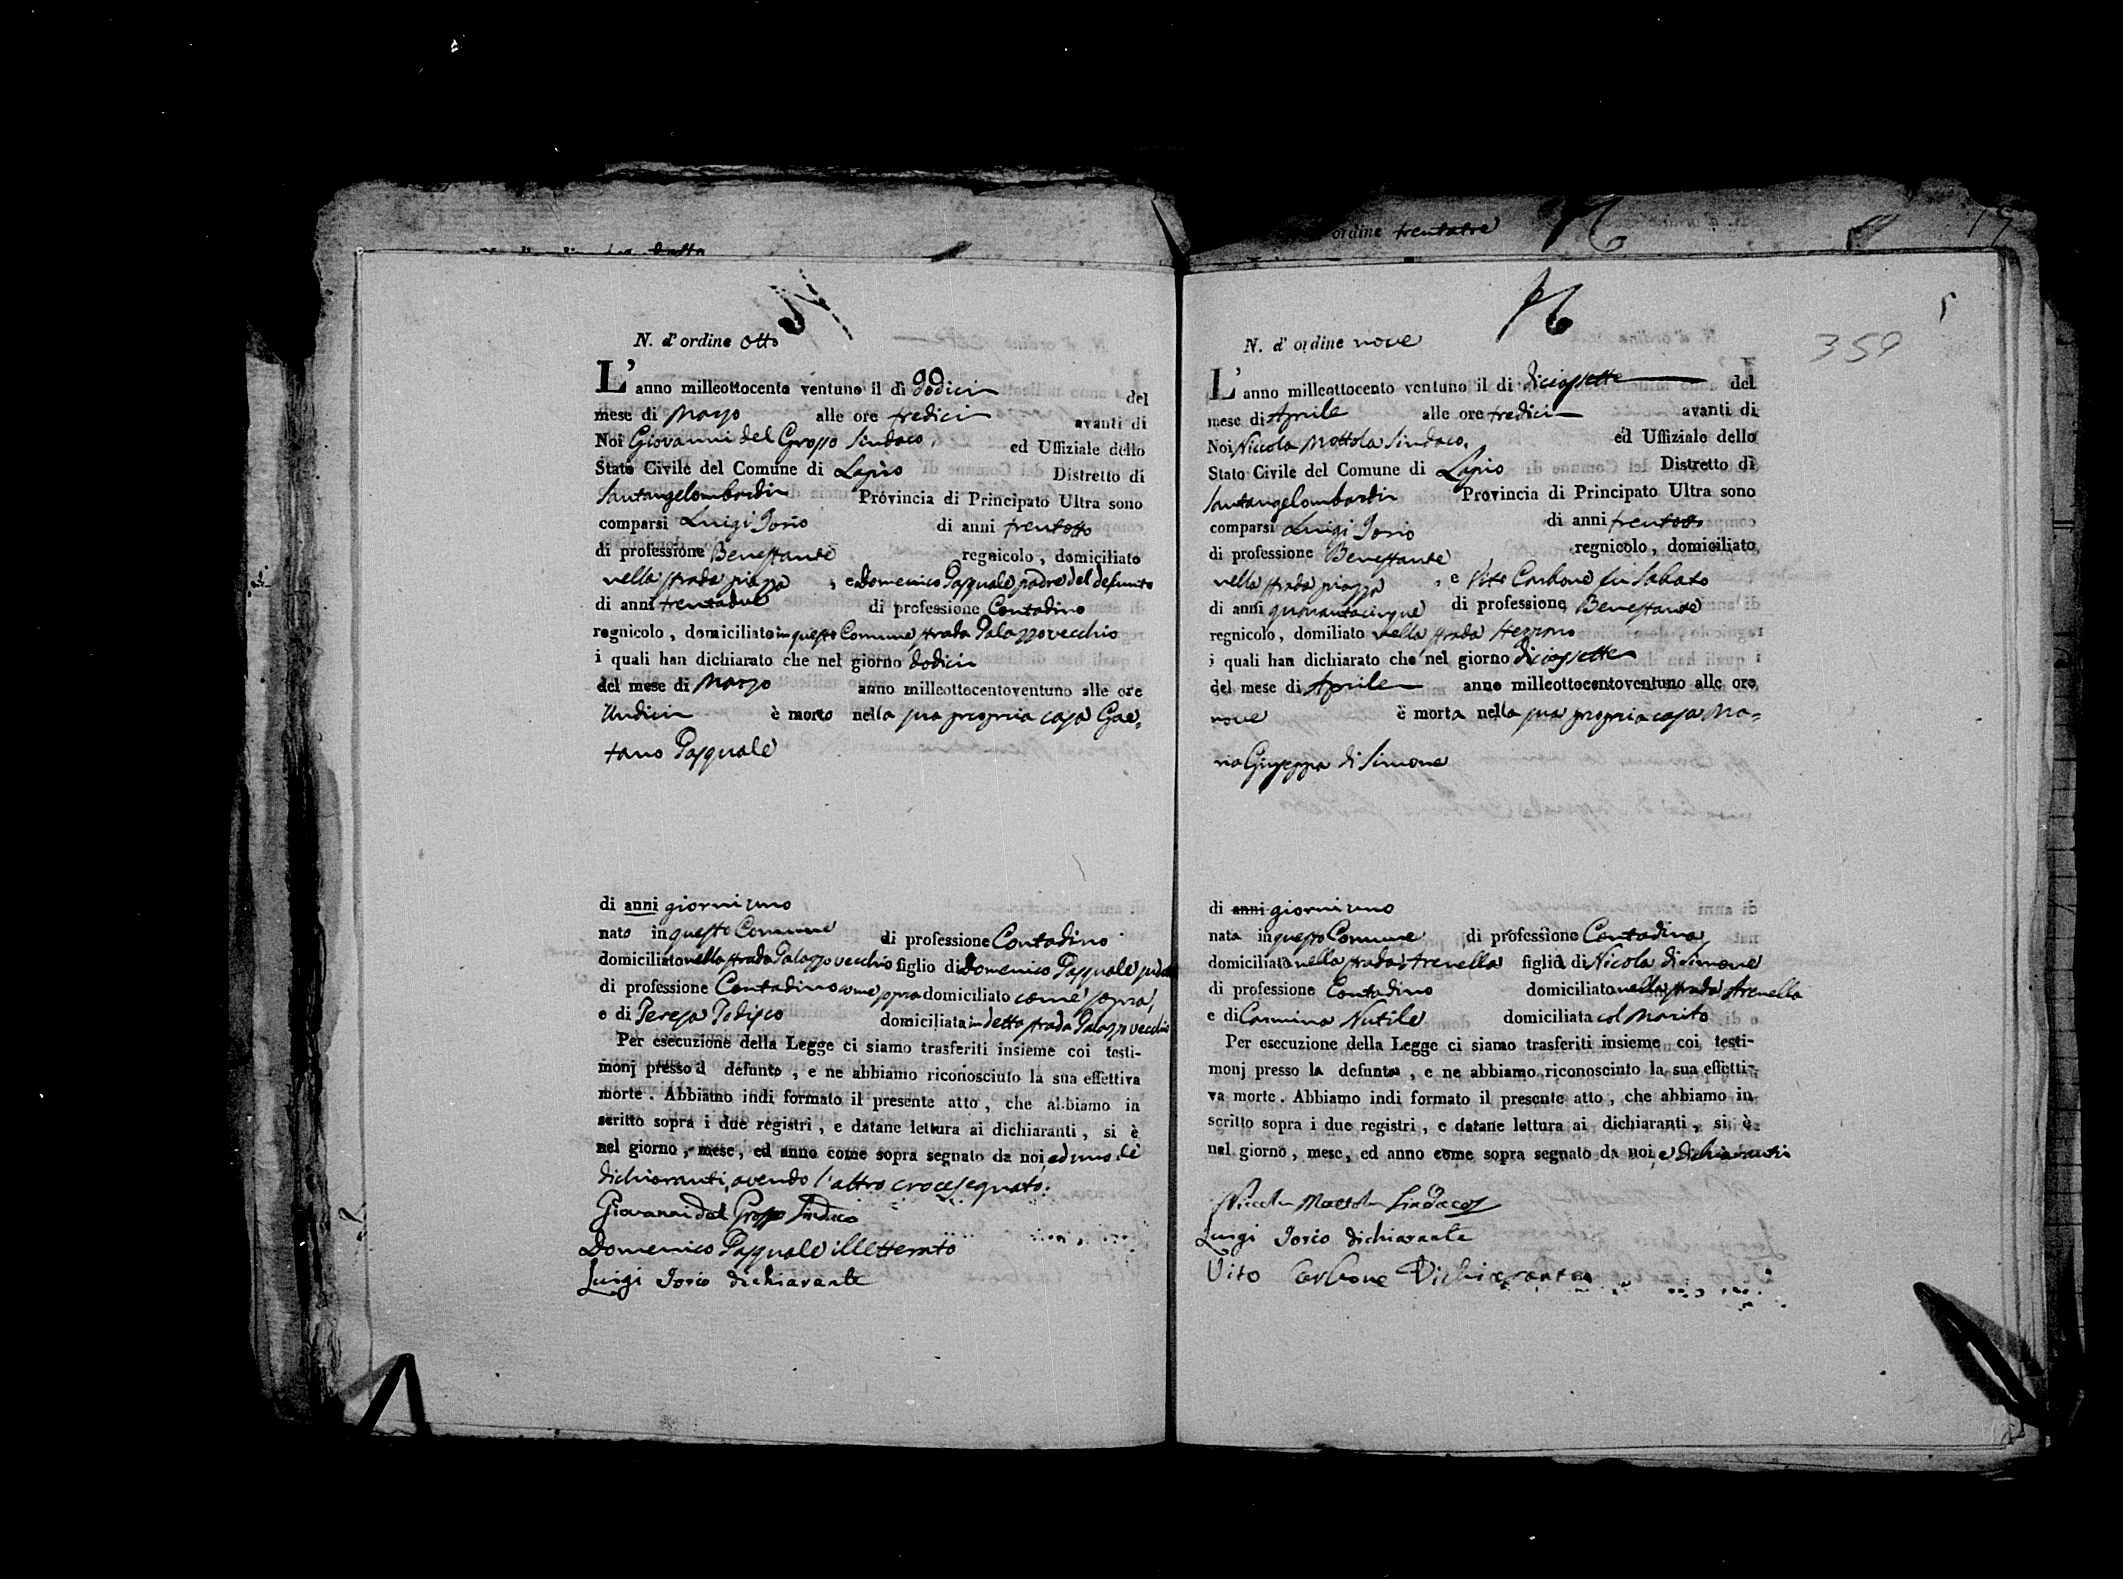 ordine trentatre
N. d' ordine otto
L' anno milleottocento ventuno il dì dodici del
mese di Marzo alle ore tredici avanti di
Noi Giovanni del Grosso Sindaco, ed Uffiziale dello
Stato Civile del Comune di Lapio Distretto di
Santangelombardi Provincia di Principato Ultra sono
comparsi Luigi Iorio di anni trentotto
di professione Benestante regnicolo, domiciliato
nella strada piazza, e Domenico Pasquale padre del defunto
di anni trentadue di professione Contadino
regnicolo, domiciliato in questo Comune strada Palazzovecchio
i quali han dichiarato che nel giorno dodici
del mese di Marzo anno milleottocentoventuno alle ore
Undici è morto nella sua propria casa Gae=
tano Pasquale
di anni giorni uno
nato in questo Comune di professione Contadino
domiciliato nella strada Palazzovecchio figlio di Domenico Pasquale
di professione Contadino come sopra domiciliato come sopra,
e di Teresa Todisco domiciliata in detta strada Palazzovecchio
Per esecuzione della Legge ci siamo trasferiti insieme coi testi-
monj presso il defunto, e ne abbiamo riconosciuto la sua effettiva
morte. Abbiamo indi formato il presente atto, che abbiamo in
scritto sopra i due registri, e datane lettura ai dichiaranti, si è
nel giorno, mese, ed anno come sopra segnato da noi, ed uno de'
dichiaranti, avendo l'altro crocesegnato.
Giovanni del Grosso Sindaco
Domenico Pasquale illetterato
Luigi Iorio dichiarante
359
N. d' ordine nove
L' anno milleottocento ventuno il di diciassette del
mese di Aprile alle ore tredici avanti di
Noi Niccola Mottola Sindaco, ed Uffiziale dello
Stato Civile del Comune di Lapio Distretto di
Santangelombardi Provincia di Principato Ultra sono
comparsi Luigi Iorio di anni trentotto
di professione Benestante regnicolo, domiciliato
nella strada piazza, e Vito Carbone fu Sabato
di anni quarantacinque di professione Benestante
regnicolo, domiliato nella strada
i quali han dichiarato che nel giorno diciassette
del mese di Aprile anno milleottocentoventuno alle ore
nove è morta nella sua propria casa Ma=
ria Giuseppa di Simone
di anni giorni uno
nata in questo Comune di professione Contadina
domiciliata nella strada Arenella figlia di Nicola di Simone
di professione Contadino domiciliato nella strada Arenella
e di Carmina Nutile domiciliata col Marito
Per esecuzione della Legge ci siamo trasferiti insieme coi testi-
monj presso la defunta, e ne abbiamo riconosciuto la sua effetti-
va morte. Abbiamo indi formato il presente atto, che abbiamo in
scritto sopra i due registri, e datane lettura ai dichiaranti, si è
nel giorno, mese, ed anno come sopra segnato da noi, e dichiaranti
Niccola Mottola Sindaco
Luigi Iorio dichiarante
Vito Carbone Dichiarante